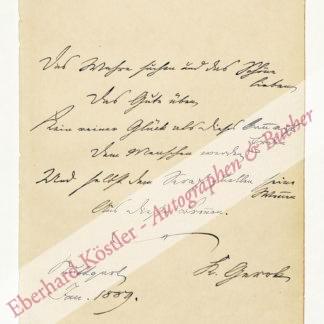 Das Wahre suchen und das Schöne
lieben,
Das Gute üben,
Kein reiner Glück als dieß kann
Dem Menschen werden
Und selbst dem seine
Wonne
Aus diesem
Stuttgart
Jan. 1889.
K. Gerok
Eberhard Köstler - Autographen & Bücher